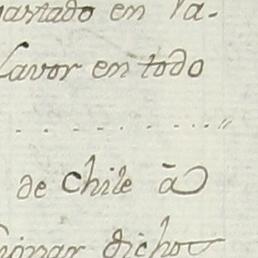 gastado en Va-
Favor en todo
de Chile à
dichos